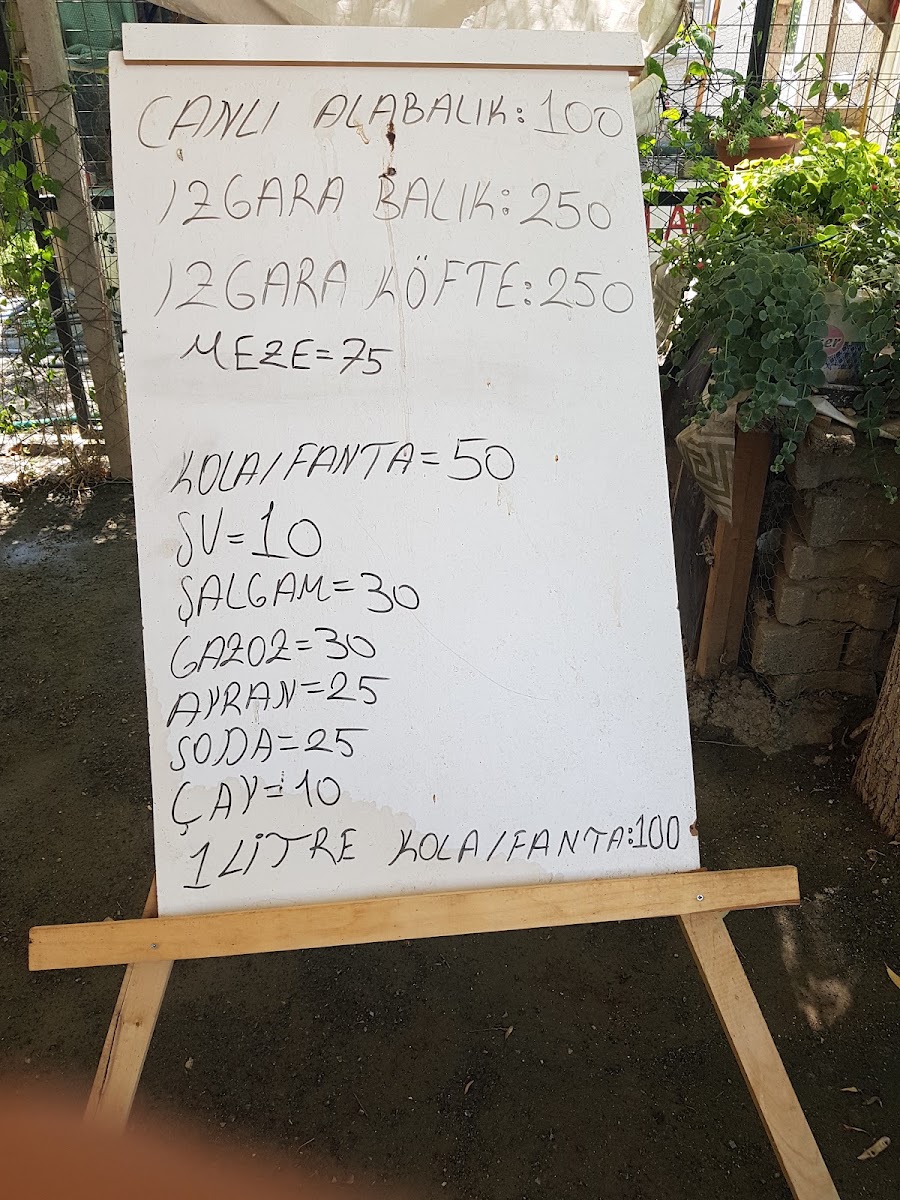 CANLI ALABALIK: 100
IZGARA BALIK: 250
IZGARA KÖFTE: 250
MEZE = 75
KOLA/FANTA = 50
SU = 10
ŞALGAM = 30
GAZOZ = 30
AYRAN = 25
SODA = 25
ÇAY = 10
1 LİTRE KOLA/FANTA: 100